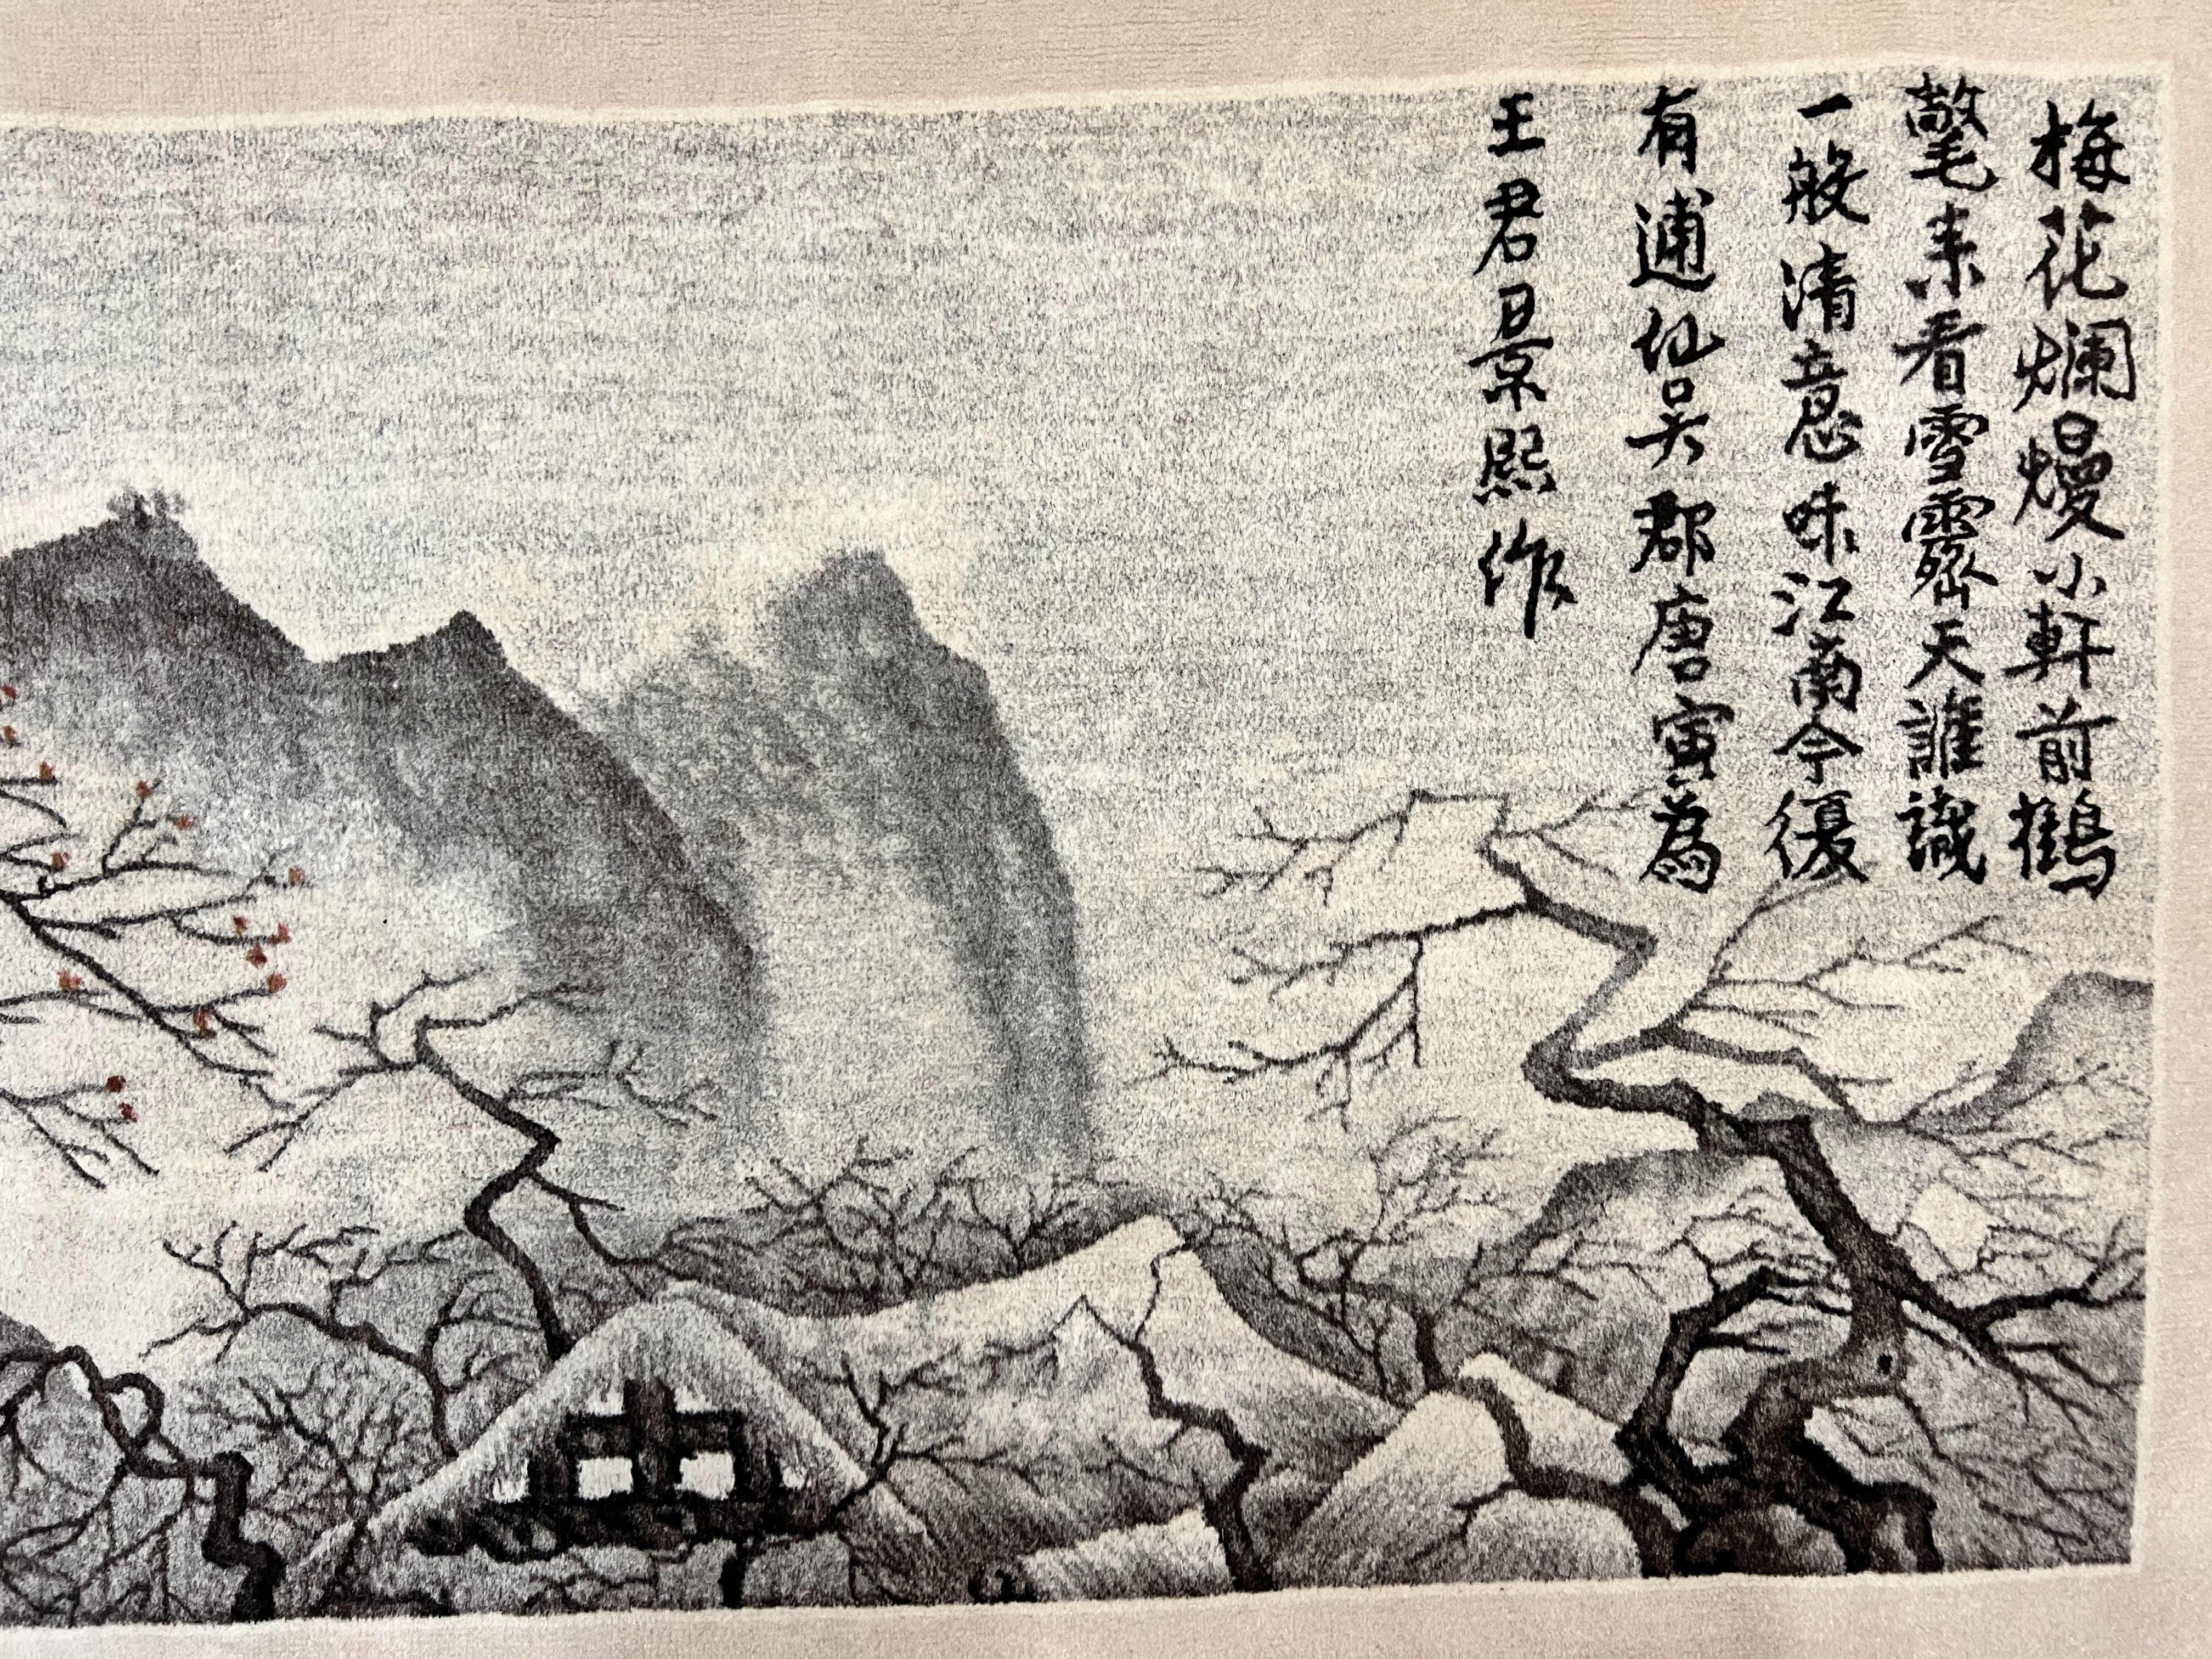 梅花爛熳小軒前鶴
氅来看雪霽天誰識
一般清意味江南今復
有逋仙吴郡唐寅為
王君景熙作